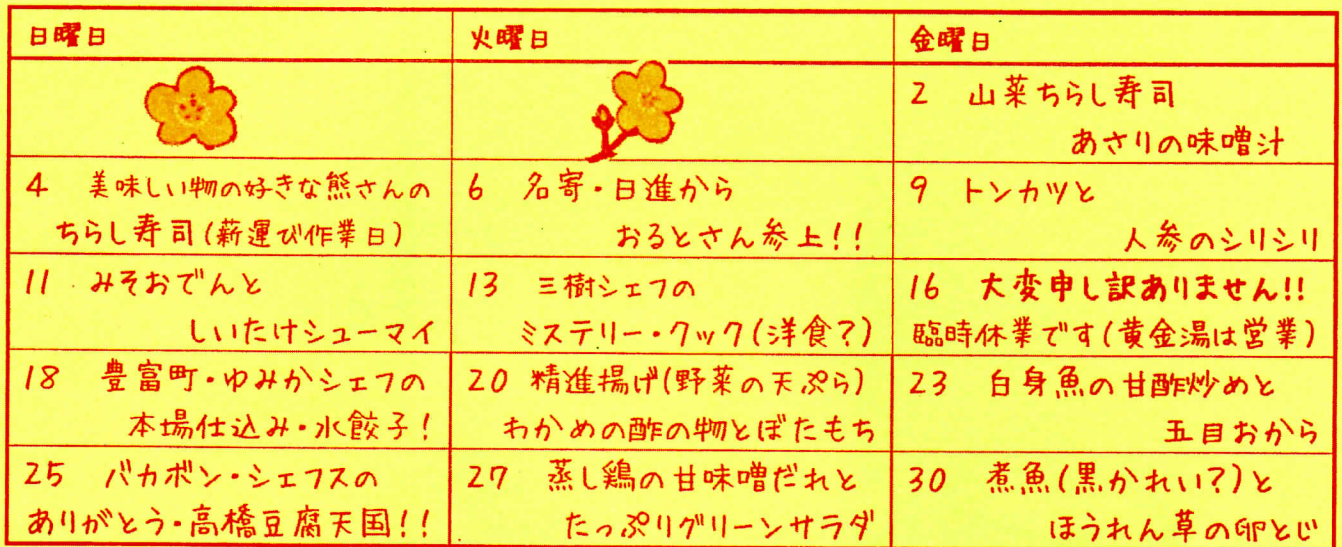 日曜日 火曜日 金曜日
2 山菜ちらし寿司
あさりの味噌汁
4 美味しい物の好きな熊さんの
ちらし寿司(薪運び作業日)
6 名寄・日進から
おるとさん参上!!
9 トンカツと
人参のシリシリ
11 みそおでんと
しいたけシューマイ
13 三樹シェフの
ミステリー・クック(洋食?)
16 大変申し訳ありません!!
臨時休業です(黄金湯は営業)
18 豊富町・ゆみかシェフの
本場仕込み・水餃子!
20 精進揚げ(野菜の天ぷら)
わかめの酢の物とぼたもち
23 白身魚の甘酢炒めと
五目おから
25 バカボン・シェフスの
ありがとう・高橋豆腐天国!!
27 蒸し鶏の甘味噌だれと
たっぷりグリーンサラダ
30 煮魚(黒かれい?)と
ほうれん草の卵とじ